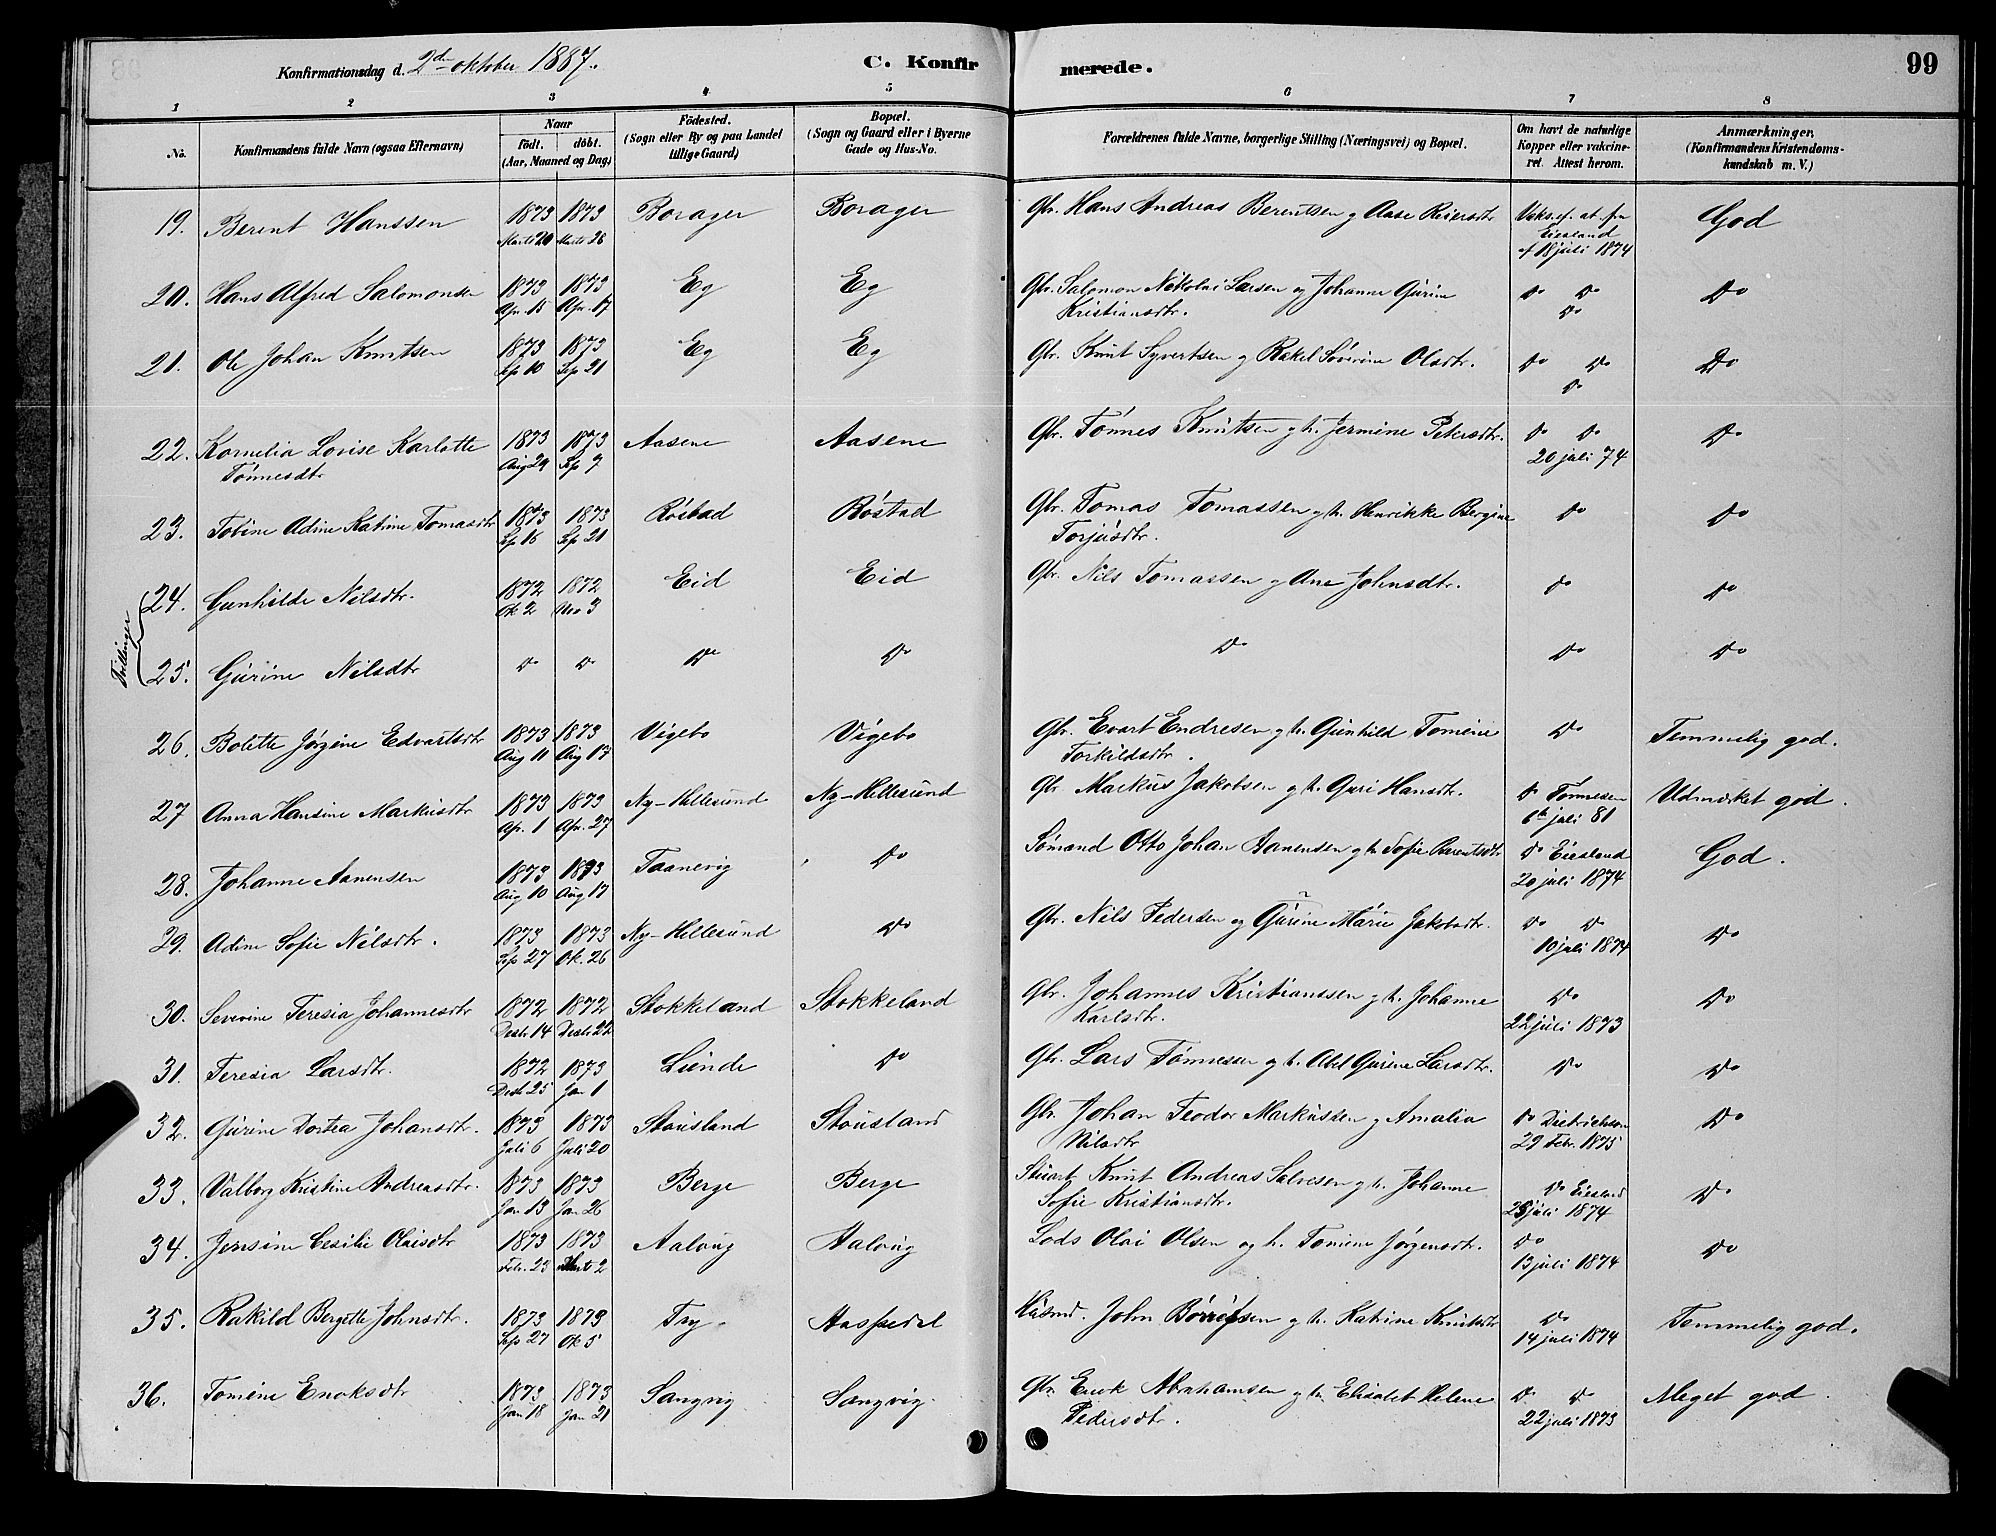 Konfirmationsdag d. 2den oktober 1887.
C. Konfirmerede.
99
1 2 3 4 5 6 7 8
No. Konfirmandens fulde Navn (ogsaa Efternavn) Naar født. døbt. (Aar, Maaned og Dag) Fødested. (Sogn eller By og paa Landet tillige Gaard) Bopæl. (Sogn og Gaard eller i Byerne Gade og Hus-No. Forældrenes fulde Navne, borgerlige Stilling (Næringsvei) og Bopæl. Om havt de naturlige Kopper eller vakcineret. Attest herom. Anmærkninger, (Konfirmandens Kristendomskundskab m. V.)
19. Berent Hanssen 1873 Marts 20 1873 Marts 26 Borager Borager Gbr. Hans Andreas Berentsen g Aase Reiersdtr Vaks. ef. at. fra Eiesland af 18 juli 1874 God
20. Hans Alfred Salomonsen 1873 Apr. 15 1873 Apr. 17 Eg Eg Gbr. Salomon Nikolai Larsen og Johanne Gurine Kristiansdtr. Do Do Do Do
21. Ole Johan Knutsen 1873 Sep 10 1873 Sep 21 Eg Eg Gbr. Knut Syvertsen g Rakel Søverine Olsdtr. Do Do Do Do
22. Kornelia Lovise Karlotte Tønnesdtr 1873 Aug 29 1873 Sep 7 Aasene Aasene Gbr. Tønnes Knutsen g h. Jermine Petersdtr. Do Do 20 juli 74 Do
23. Tobine Adine Katrine Tomasdtr 1873 Sep 16 1873 Sep 21 Røstad Røstad Gbr. Tomas Tomassen g h. Henrikke Bergine Torjusdtr. Do Do
Tvillinger
24. Gunhilde Nilsdtr. 1872 Ok 2 1872 Nov 3 Eid Eid Gbr. Nils Tomassen g Ane Johnsdtr. Do Do
25. Gurine Nilsdtr Do Do Do Do Do Do Do
26. Bolette Jørgine Edvartsdtr 1873 Aug 11 1873 Aug 17 Vigebo Vigebo Gbr. Evart Endresen g h. Gunhild Tomine Torkildsdtr. Do Temmelig god.
27 Anna Hansine Markusdtr 1873 Apr. 1 1873 Apr. 27 Ny-Hellesund Ny-Hellesund Gbr Markus Jakobsen g h. Guri Hansdtr. Do Tønnesen 6te juli 81 Udmærket god.
28. Johanne Aanensen 1873 Aug 10 1873 Aug 17 Taanevig Do Sømand Otto Johan Aanensen g h. Sofie Berentsdtr Do Eiesland 20 juli 1874 God.
29. Adine Sofie Nilsdtr. 1873 Sep 27 1873 Ok. 26 Ny-Hellesund Do Gbr. Nils Pedersen og Gurine Marie Jakobsdtr. Do Do 10 juli 1874 Do
30. Severine Teresia Johannesdtr 1872 Desbr 14 1872 Desbr 22 Stokkeland Stokkeland Gbr. Johannes Kristianssen g h. Johanne Karlsdtr. Do 22 juli 1873 Do
31. Teresia Larsdtr. 1872 Desb 25 1873 Jan 1 Lunde Do Gbr. Lars Tønnessen og h. Abel Gurine Larsdtr. Do Do
32. Gurine Dortea Johansdtr. 1873 Juli 6 1873 Juli 20 Stousland Stousland Gbr Johan Teodor Markussen g Amalia Nilsdtr Do Dietrichson 29 Febr. 1875 Do
33. Valborg Kristine Andreasdtr. 1873 Jan 13 1873 Jan 26 Berge Berge Stuart Knut Andreas Salvesen g h. Johanne Sofie Kristiansdtr. Do Eiesland 25 juli 1874 Do
34. Jensine Cesilie Olaisdtr 1873 Febr. 23 1873 Mart 2 Aalvig Aalvig Lods Olai Olsen og h. Tomine Jørgensdtr. Do 13 juli 1874 Do
35. Rakild Bergette Johnsdtr. 1873 Sep 27 1873 Ok 5 Try Aaspedal Husmd. John Børrufsen g h. Katrine Knutsdtr Do 14 juli 1874 Temmelig god.
36. Tomine Enoksdtr 1873 Jan 18 1873 Jan 21 Sangvig Sangvig. Gbr Enok Abrahamsen g h. Elisabet Helene Pedersdtr. Do Do 22 juli 1873 Meget god.